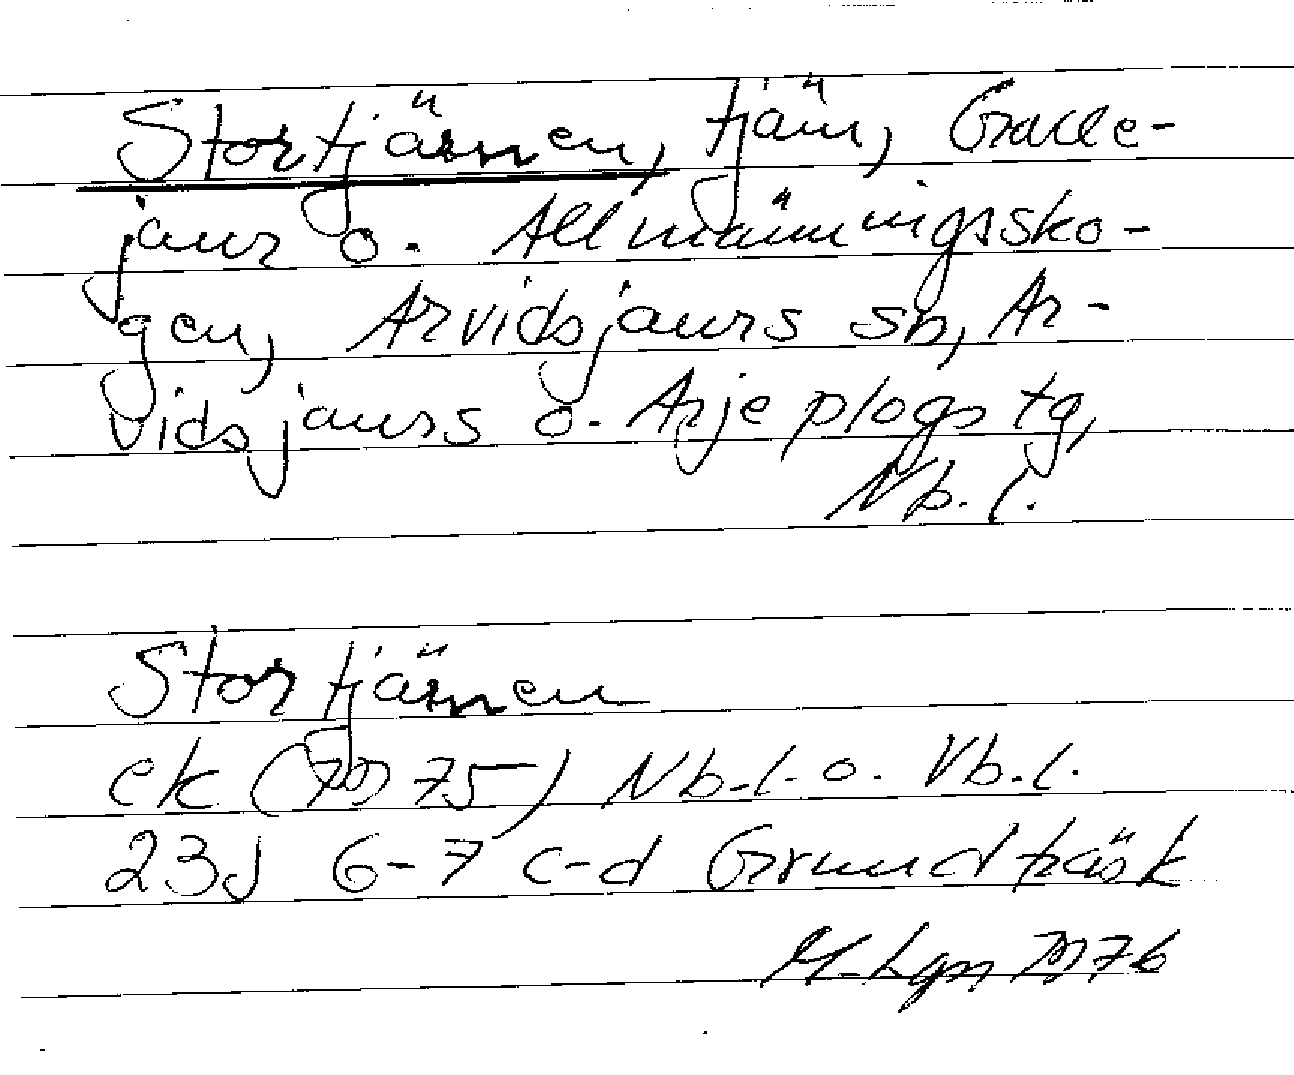 Stortjärnen, tjärn, Gralle-
jaur o. Allmänningssko-
gen, Arvidsjaurs sn, Ar-
vidsjaurs o. Arjeplogs tg,
Nb. l.
Stortjärnen
ek (1975) Nb. l. o. Vb. l.
23J 6-7 c-d Grundträsk
M-Lgn 1976